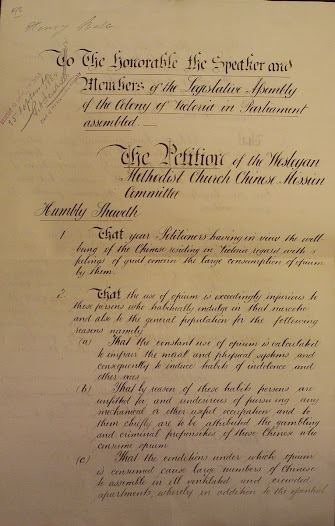 To The Honorable the Speaker and
Members of the Legislative Assembly
of the Colony of Victoria in Parliament
assembled
The Petition of the Wesleyan
Methodist Church Chinese Mission
Committee
Humbly Sheweth
1 That your Petitioners having in view the well
being of the Chinese residing in Victoria regard with
feelings of great concern the large consumption of opium
by them.
2. That the use of opium is exceedingly injurious to
those persons who habitually indulge in that narcotic
and also to the general population for the following
reasons namely
(a) That the constant use of opium is calculated
to impair the moral and physical systems and
consequently to induce habits of indolence and
other vices
(b) That by reason of these habits persons are
unfitted for and undesirous of pursuing any
mechanical or other useful occupation and to
them chiefly are to be attributed the gambling
and criminal propensities of those Chinese who
consume opium
(c) That the conditions under which opium
is consumed cause large numbers of Chinese
to assemble in ill ventilated and crowded
apartments whereby in addition to the